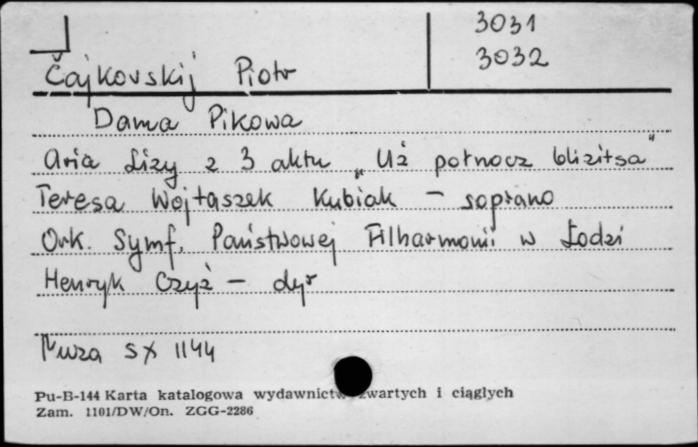 3031
3032
Čajkovskij Piotr
Dama Pikowa
Aria Lizy z 3 aktu „Uż połnocz bliżitsa"
Teresa Wojtaszek Kubiak – soprano
Ork. Symf. Państwowej Filharmonii w Łodzi
Henryk Czyż – dyr
Muza SX 1144
Pu-B-144 Karta katalogowa wydawnictw zwartych i ciągłych
Zam. 1101/DW/On. ZGG-2286